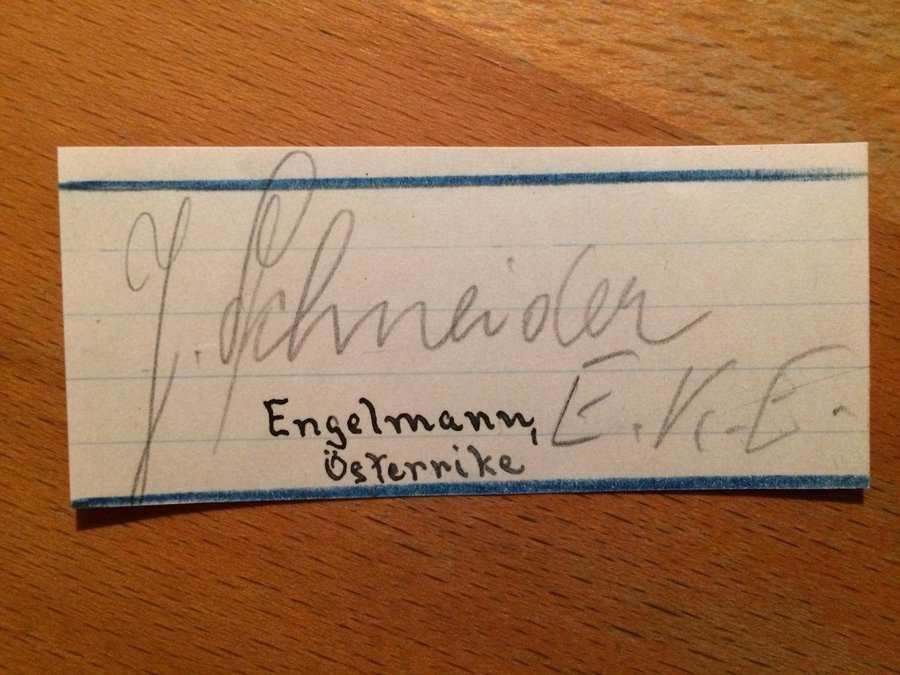 J. Schneider
E.K.E.
Engelmann,
Österrike